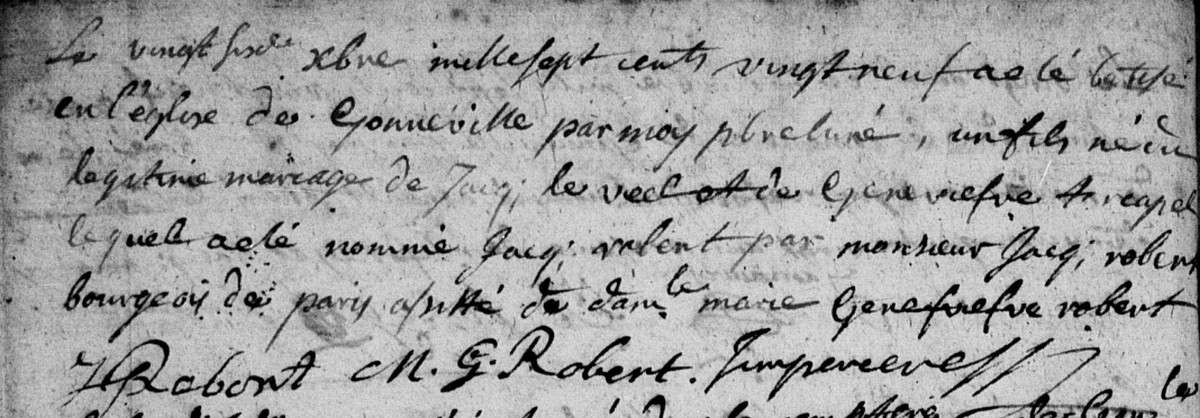 Le vingt sixe xbre mille sept cents vingt neuf a eté batisé
en l'église de Gonneville par moy pbre curé, un fils né du
legitime mariage de Jacq; le veel et de Geneviefve trapel
lequel a eté nommé Jacq; robert par monsieur Jacq; robert
bourgeois de paris assisté de damle marie Genefviefve robert
J Robert M. G. Robert.